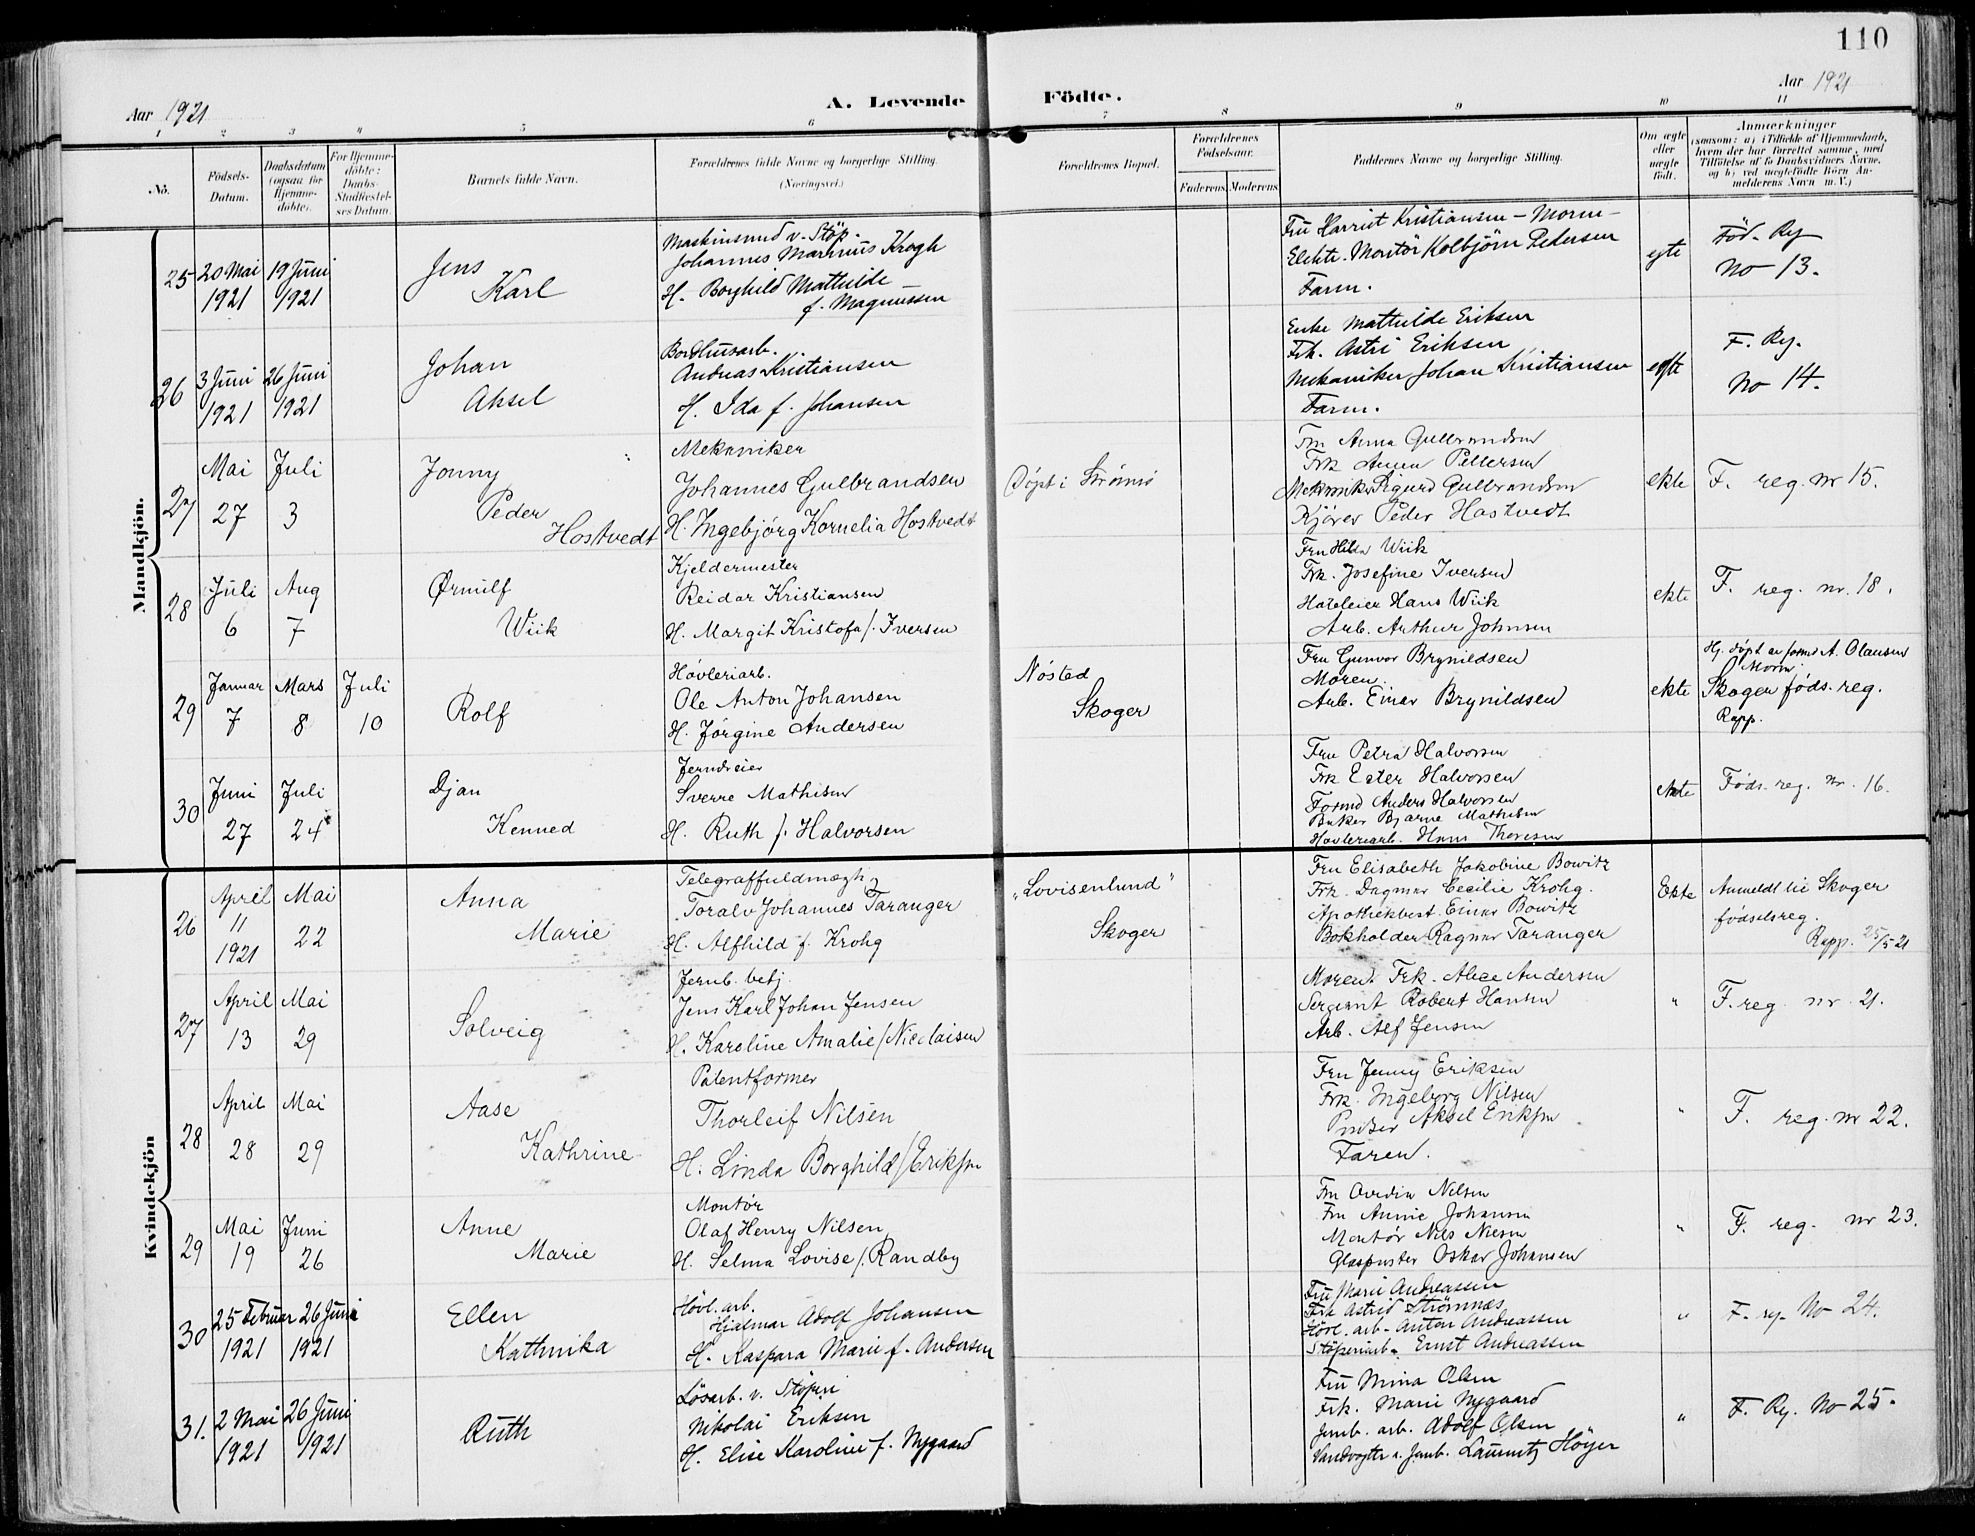 110
Aar 1921
A. Levende Födte.
Aar 1921
1 2 3 4 5 6 7 8 9 10 11
No.
Födsels-Datum.
Daabsdatum (ogsaa for Hjemme-döbte).
For Hjemme-döbte: Daabs-Stadfæstelses Datum.
Barnets fulde Navn.
Forældrenes fulde Navne og borgerlige Stilling.
(Næringsvei.)
Forældrenes Bopæl.
Forældrenes Födselsaar.
Faderens. Moderens.
Faddernes Navne og borgerlige Stilling.
Om ægte eller uægte födt.
Anmærkninger
(saasom: a) i Tilfælde af Hjemmedaab, hvem der har forrettet samme, med Tilföielse af to Daabsvidners Navne, og b) ved uægtefödte Börn Anmelderens Navn m. V.)
Mandkjön.
25
20 Mai 1921
19 Juni 1921
Jens
Karl
Maskinsmed v. Støp.
Johannes Marinius Krogh
H. Borghild Mathilde
f. Magnussen
Fru Harriet Kristiansen - Moren -
Elektr. Montör Kolbjörn Pedersen
Faren.
egte
Fød. Reg
No 13.
26
3 Juni 1921
26 Juni 1921
Johan
Aksel
Bordhusarb.
Andreas Kristiansen
H. Ida f. Johansen
Enke Mathilde Eriksen
Frk. Astri Eriksen
Mekaniker Johan Kristiansen
Faren.
egte
F. Reg.
No 14.
27
Mai 27
Juli 3
Jonny
Peder
Hostvedt
Mekaniker
Johannes Gulbrandsen
H. Ingebjørg Kornelia Hostvedt
Døpt i Strømsø
Fru Anna Gulbrandsen
Frk Anna Pettersen
Mekaniker Sigurd Gulbrandsen
Kjører Peder Hostvedt
ekte
F. reg. nr 15.
28
Juli 6
Aug 7
Ørnulf
Wiik
Kjeldermester
Reidar Kristiansen
H. Margit Kristofa f. Iversen
Fru Hilda Wiik
Frk. Josefine Iversen
Hoteleier Hans Wiik
Arb. Arthur Johnsen
ekte
F. reg. nr. 18.
29
Januar 7
Mars 8
Juli 10
Rolf
Høvleriarb.
Ole Anton Johansen
H. Jørgine Andersen
Nøsted
Skoger
Fru Gunvor Brynildsen
Moren.
Arb. Einar Brynildsen
ekte
Hj. døpt av formd A. Olaussen
Moren
Skoger føds. reg.
Rapp.
30
Juni 27
Juli 24
Djan
Kenned
Jerndreier
Sverre Mathisen
H. Ruth f. Halvorsen
Fru Petra Halvorsen
Frk Ester Halvorsen
Formd Anders Halvorsen
Baker Bjarne Mathisen
Høvleriarb. Hans Thoresen
ekte
Føds. reg. nr. 16.
Kvindekjön
26
April 11 1921
Mai 22
Anna
Marie
Telegraffuldmægt.
Toralv Johannes Taranger
H. Alfhild f. Krohg
"Lovisenlund"
Skoger
Fru Elisabeth Jakobine Bowitz
Frk. Dagmar Cecilie Krohg.
Apothekbest. Einar Bowitz
Bokholder Ragnar Taranger
Ekte
Anmeldt til Skoger
fødselsreg.
Rapp. 25/5 21
27
April 13
Mai 29
Solveig
Jernb. betj.
Jens Karl Johan Jensen
H. Karoline Amalie f. Nicolaisen
Moren. Frk. Alice Andersen
Sergeant Robert Hansen
Arb. Alf Jensen
"
F. reg. nr. 21.
28
April 28
Mai 29
Aase
Kathrine
Patentformer
Thorleif Nilsen
H. Linda Borghild f. Eriksen
Fru Jenny Eriksen
Frk. Ingeborg Nilsen
Pudser Aksel Eriksen
Faren.
"
F. reg. nr 22.
29
Mai 19
Juni 26
Anne
Marie
Montør
Olaf Henry Nilsen
H. Selma Lovise f. Randby
Fru Ovedia Nilsen
Fru Annie Johansen
Montør Nils Nilsen
Glaspuster Oskar Johansen
"
F. reg. nr 23.
30
25 Februar 1921
26 Juni 1921
Ellen
Kathinka
Høvl. arb.
Hjalmar Adolf Johansen
H. Kaspara Marie f. Andersen
Fru Marie Andreassen
Frk Astrid Strömnæs
Hövl. arb. Anton Andreassen
Støperiarb. Ernst Andreassen
"
F. reg. No 24.
31.
2 Mai 1921
26 Juni 1921
Ruth
Løsarb. v. Støperi
Nikolai Eriksen
H. Elise Karoline f. Nygaard
Fru Mina Olsen
Frk. Marie Nygaard
Jernb. arb. Adolf Olsen
Lauritz Höyer
"
F. Reg. No 25.